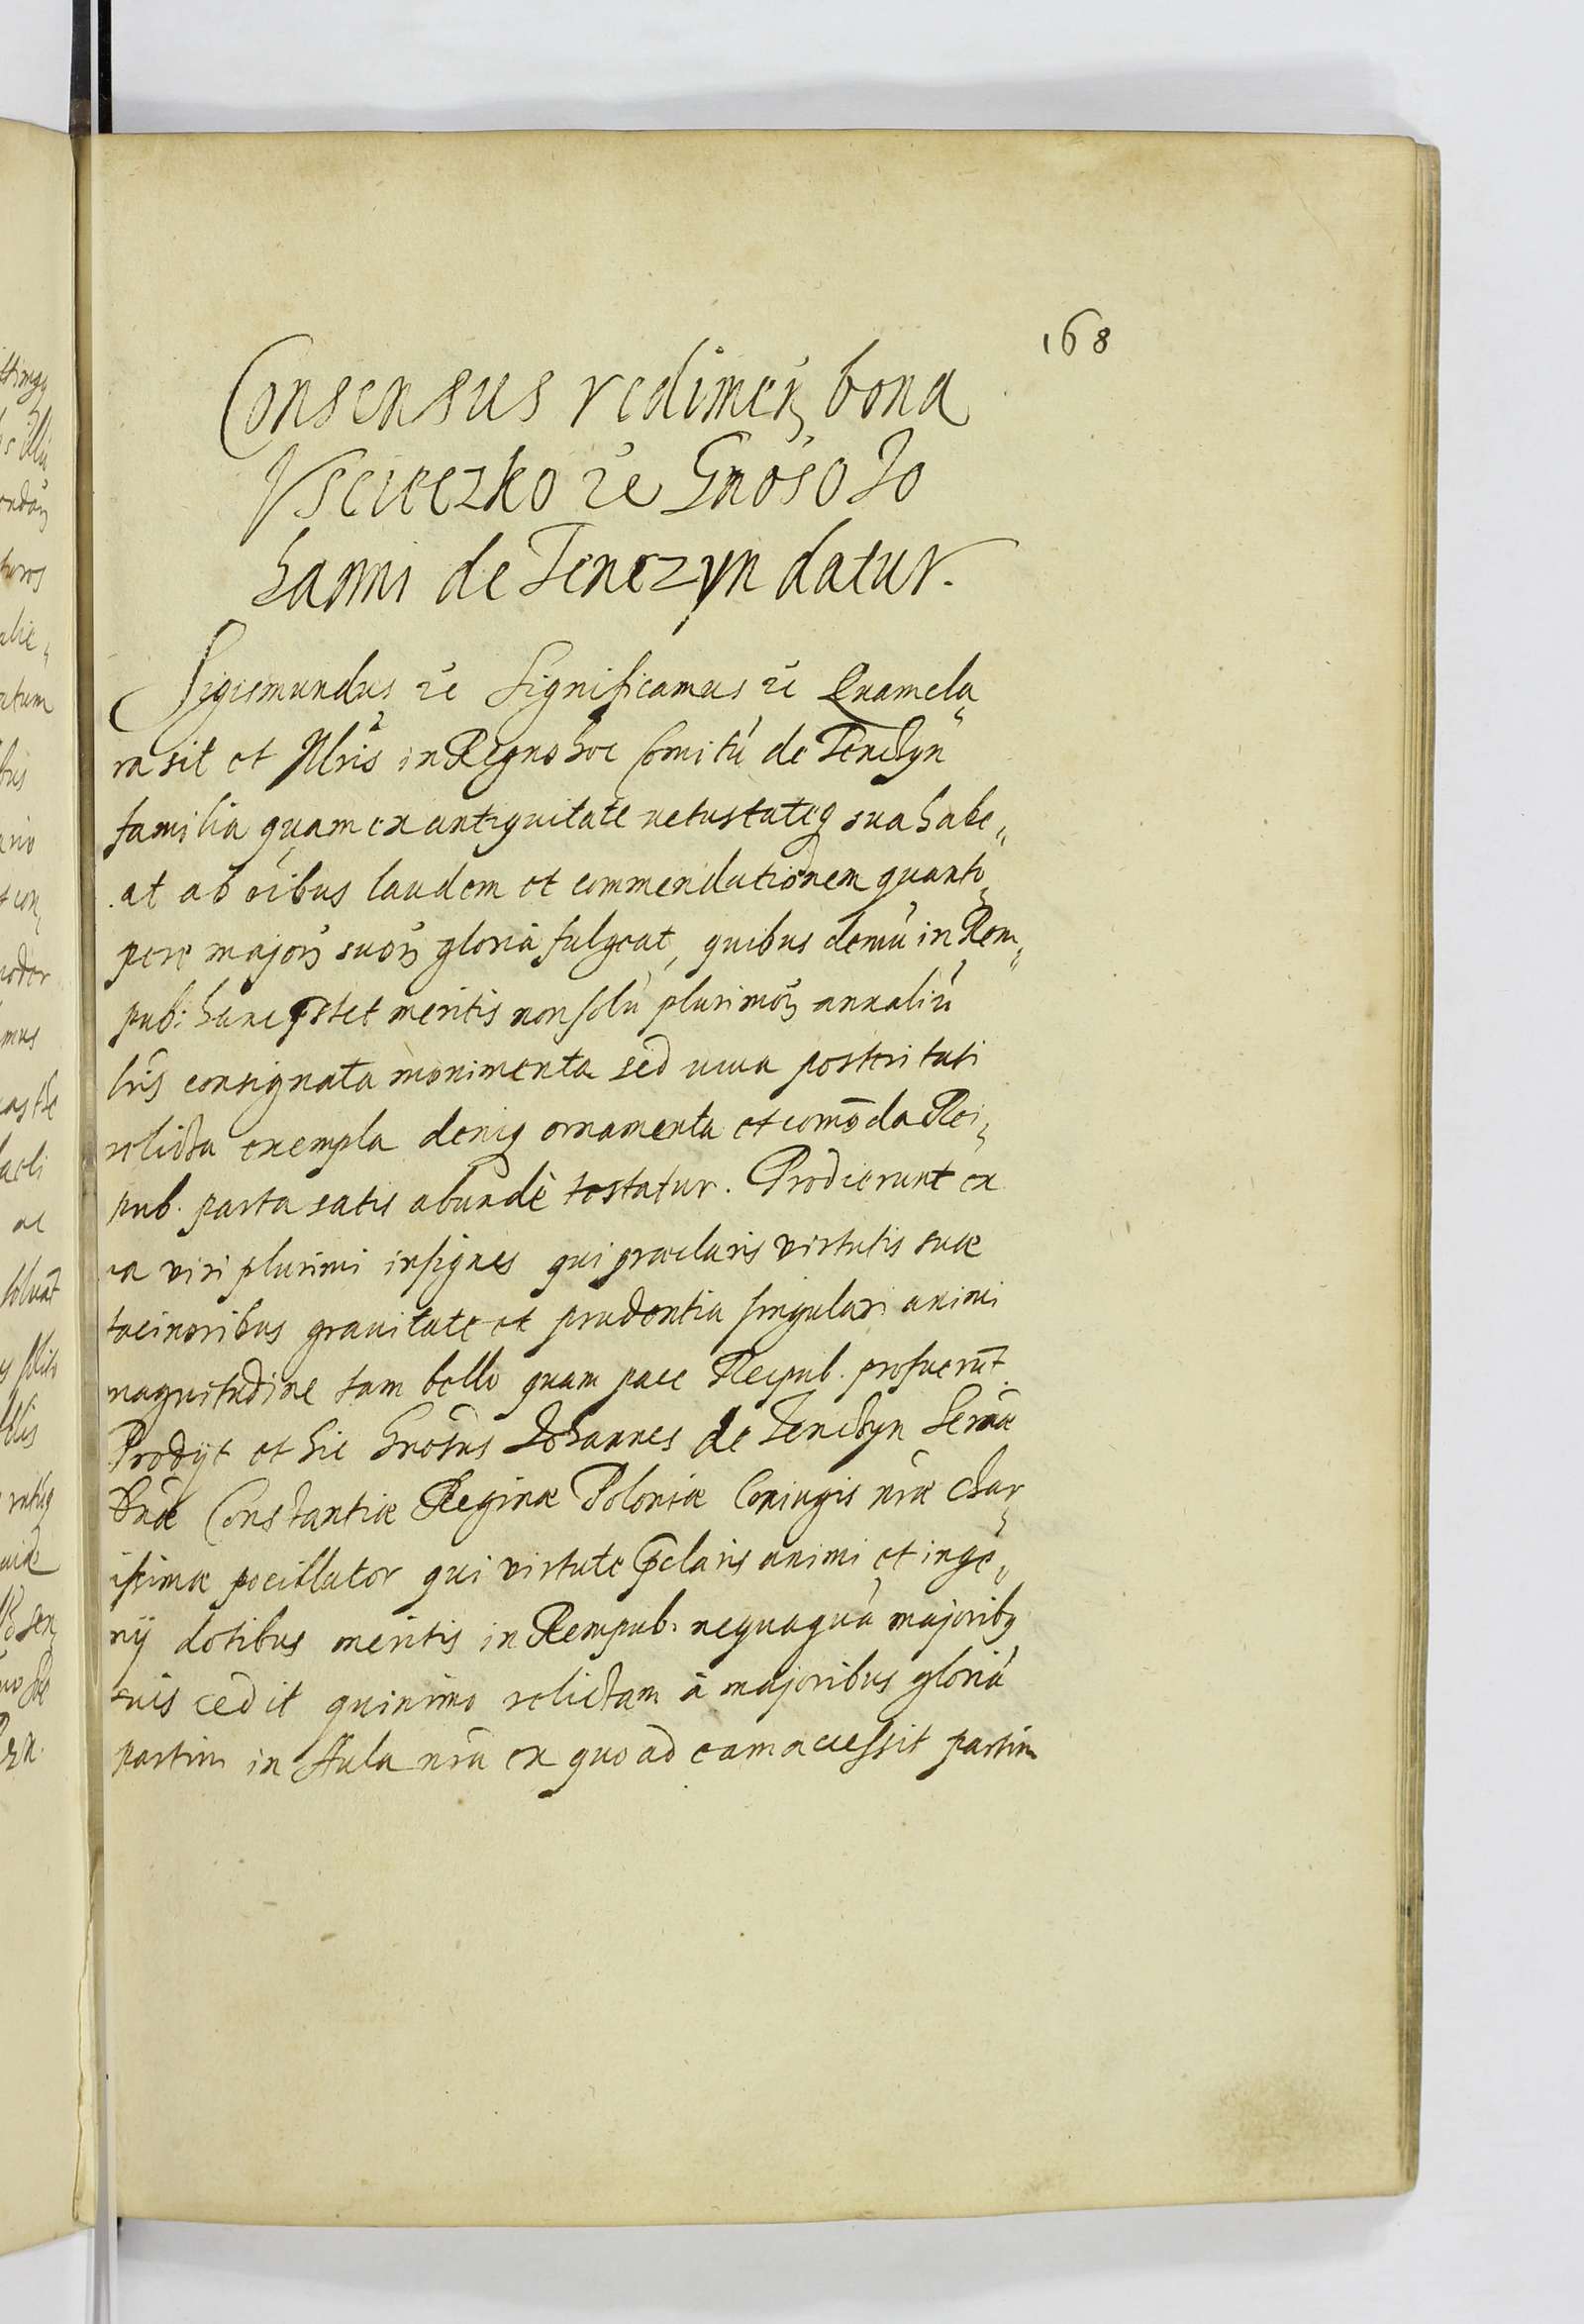 168
Consensus redimen̄ bona
Vscieczko ꝛc̄ Gnōso Jo
hanni de Tenczyn datur.
Sigismundus ꝛc̄ Significamus ꝛc̄ Quam cla„
ra sit et Illris in Regno hoc Comitū de Tenczyn
familia quam ex antiquitate vetustateq sua habe„
at ab oībus laudem et commendationem quanto„
pere majorꝝ suorꝝ gloria fulgeat, quibus demū in Rem„
pub: hanc extet meritis non solū plurimorꝝ annaliū
lrīs consignata monimenta sed viva posteritati
relicta exempla deniq ornamenta et com̄oda Rei„
pub. parta satis abundè testatur. Prodierunt ex
ea viri plurimi insignes qui præclaris virtutis suæ
facinoribus gravitate et prudentia singulari animi
magnitudine tam bello quam pace Reipub. profuerūt.
Prodijt et hic Gnōsus Johannes de Tenczyn Sermæ
Dnæ Constantiæ Reginæ Poloniæ Coniugis nræ char„
issimæ pocillator qui virtute p̄claris animi et inge„
nij dotibus meritis in Rempub. nequaquā majoribq
suis cedit quinimo relictam à majoribus gloriā
partim in Aula nrā ex quo ad eam accessit partim